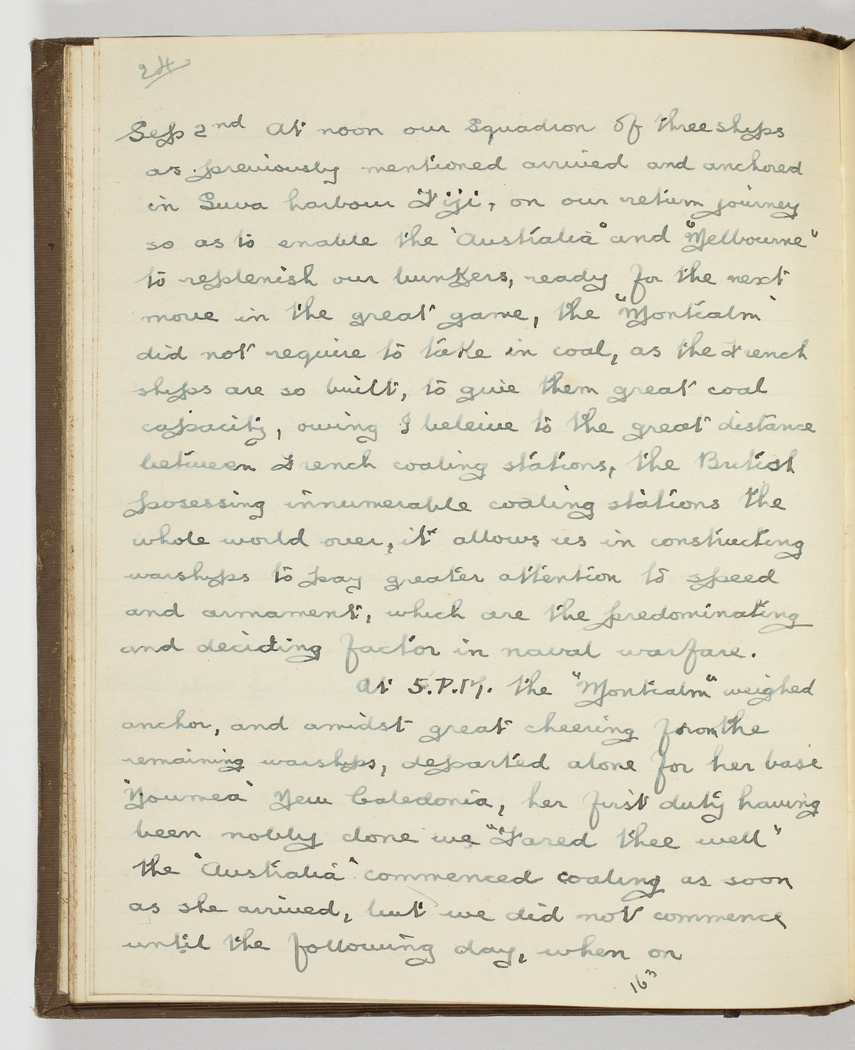 24
Sep 2nd At noon our Squadron of three ships
as previously mentioned arrived and anchored
in Suva harbour Fiji, on our return journey
so as to enable the "Australia" and "Melbourne"
to replenish our bunkers, ready for the next
move in the great game, the "Montcalm"
did not require to take in coal, as the French
ships are so built, to give them great coal
capacity, owing I beleive to the great distance
between French coaling stations, the British
posessing innumerable coaling stations the
whole world over, it allows us in constructing
warships to pay greater attention to speed
and armament, which are the predominating
and deciding factor in naval warfare.
At 5.P.M. the "Montcalm" weighed
anchor, and amidst great cheering from the
remaining warships, departed alone for her base
"Noumea" New Caledonia, her first duty having
been nobly done we "Fared thee well"
the "Australia" commenced coaling as soon
as she arrived, but we did not commence
until the following day, when on
163